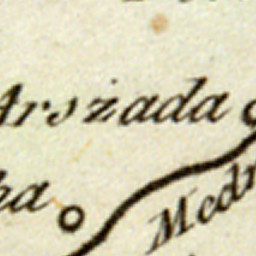 Arszada
ka
Medr